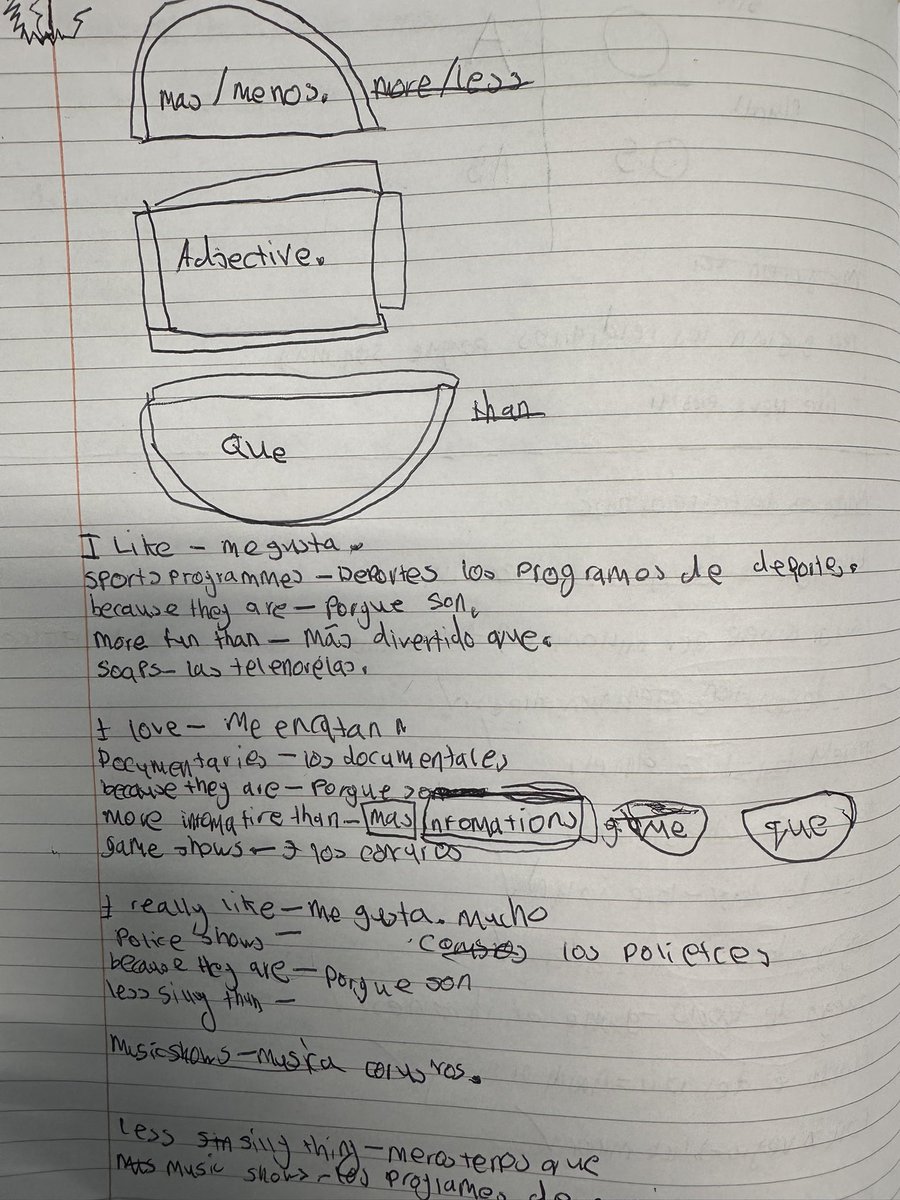 mas/menos. more/less
Adjective.
Que than
I Like - me gusta.
sports programmes - Deportes los programos de deportes.
because they are - Porque son.
more fun than - Más divertido que.
soaps - las telenovelas.
I love - Me encatan
Documentaries - los documentales
because they are - Porque
more infomative than - mas infomations que que
game shows - los
I really like - me gusta. mucho
Police shows - los
because they are - Porque son
less silly than -
Music shows - musica
less silly thing - que
Music shows - los de